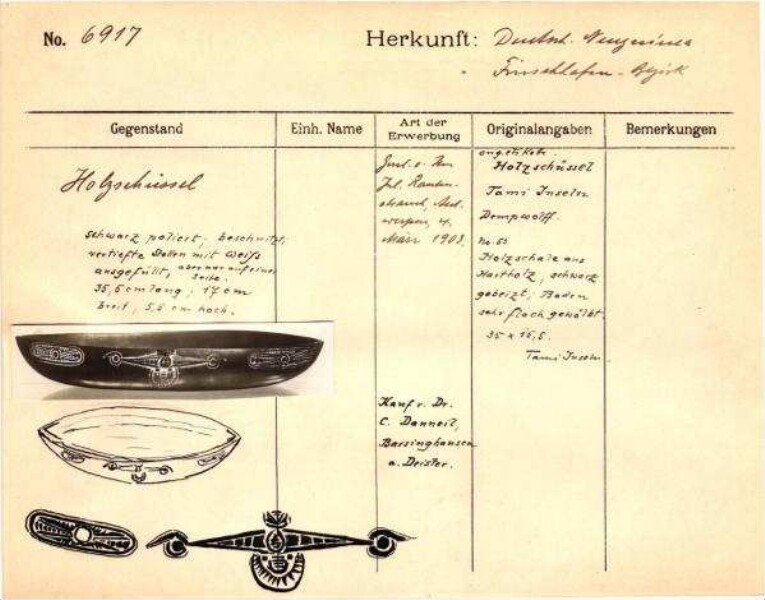 No. 6917
Herkunft: Deutsch. Neuguinea
Finschhafen - Bezirk
Gegenstand
Einh. Name
Art der
Erwerbung
Originalangaben
Bemerkungen
Holzschüssel
schwarz poliert, beschnitzt,
vertiefte Stellen mit Weiß
ausgefüllt, aber nur auf einer
Seite.
35,5 cm lang, 17 cm
breit, 5,5 cm hoch.
Jul. Rauten-
strauch, Ant-
werpen, 4.
März 1903.
Kauf v. Dr.
C. Danneil,
Barsinghausen
a. Deister.
Holzschüssel
Tami Inseln
Dempwolff.
Holzschale aus
Hartholz, schwarz
gebeizt; Boden
sehr flach gewölbt.
35 x 16,5.
Tami Inseln.